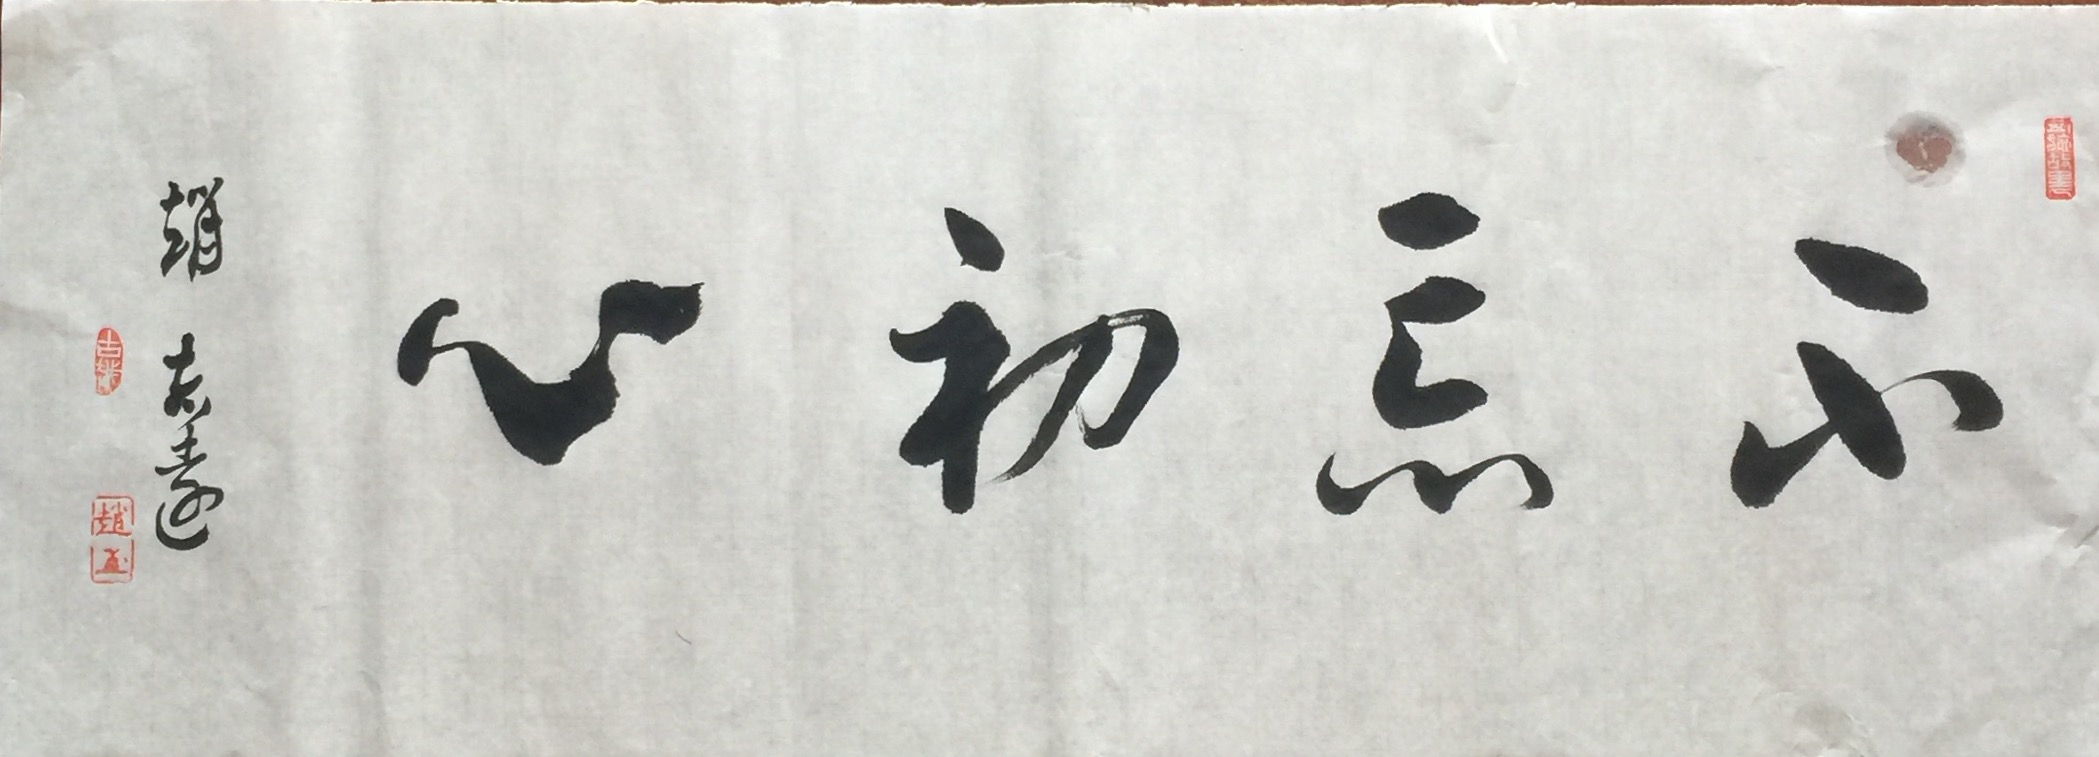 不忘初心
趙志遠
趙